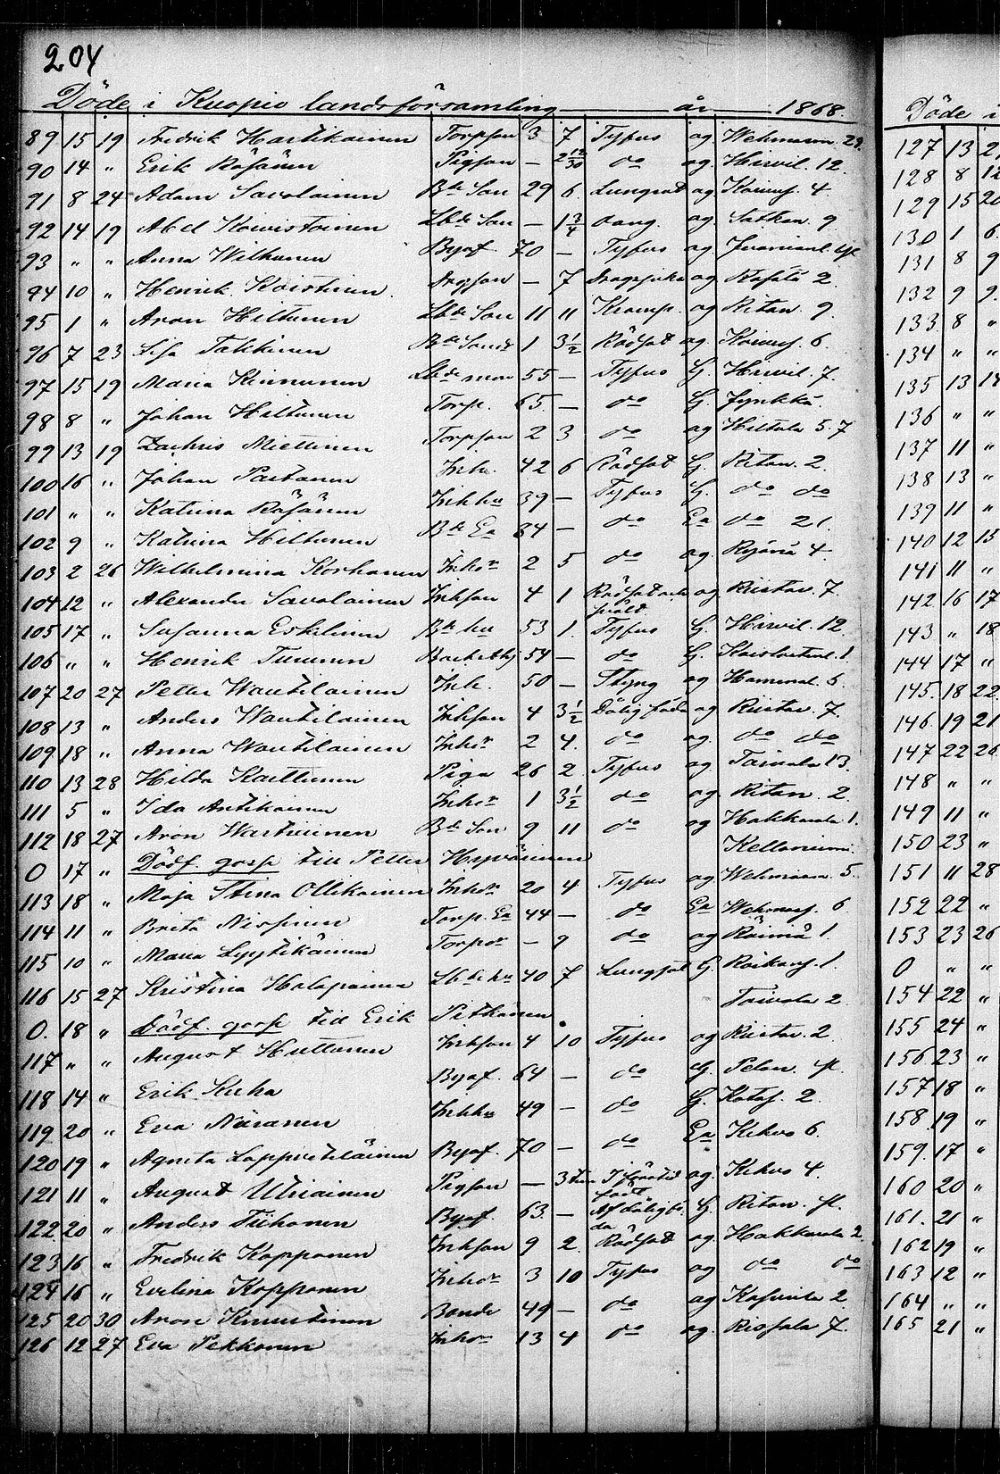 204
Döde i Kuopio landsförsamling år 1868.
89 15 19 Fredrik Hartikainen Torpson 3 7 Typus og Wehmasm. 22.
90 14 " Erik Räsänen Pigson — 2 12/30 do og Hirvil. 12.
91 8 24 Adam Savolainen Bde Son 29 6 Lungsot og Koivus. 4
92 14 19 Abel Koivistoinen Lbde Son — 1 3/4 og Sotkan. 9
93 " " Anna Wilhunen Byaf. 70 — Typus og
94 10 " Henrik Koistinen — 7 og 2.
95 1 " Aron Hiltunen Lbde Son 11 11 Kramp. og Ritan. 9.
96 7 23 Takkinen 1 3 1/2 Rödsot og Koivus. 6.
97 15 19 Maria Kinnunen Lbde mor 55 — Typus G. Hirvil. 7.
98 8 " Johan Hiltunen Torp. 65 — do G. Jynkkä.
99 13 19 Zachris Miettinen Torpson 2 3 do og Hiltula 5.7
100 16 " Johan Partanen Inh. 42 6 Rödsot G. Ritan. 2.
101 " " Katrina Räsänen Inhhu 39 — Typus G. do do
102 9 " Katrina Hiltunen Bde Ea 84 — do Ea do 21.
103 2 26 Wilhelmina Korhonen Inhor 2 5 do og 4
104 12 " Alexander Savolainen Inhson 4 1 Rödsot och og Riistav. 7.
105 17 " Susanna Eskelinen Bde hu 53 1. Typus G. Hirvil. 12.
106 " " Henrik Turunen 54 — do G. 1.
107 20 27 Petter Wautilainen Inh. 50 — Styng og Hammal. 6.
108 13 " Anders Wautilainen Inhson 4 3 1/2 Dålig föda og Riistav. 7.
109 18 " Anna Wautilainen Inhor 2 4. do og. do do
110 13 28 Hilda Karttunen Piga 26 2. Typus og Toivala 13.
111 5 " Ida Antikainen Inhor 1 3 1/2 do og Ritan. 2.
112 18 27 Aron Wartiainen Bde Son 9 11 do og Hakkarala 1.
0 17 " Dödf. gosse till Petter Hyvärinen Kellonium.
113 18 " Maja Stina Ollikainen Inhor 20 4 Typus og Wehmasm. 5.
114 11 " Brita Nissinen Torp. Ea 44 — do Ea 6
115 10 " Maria Lyytikäinen Torpor — 9 do og Räimä 1.
116 15 27 Kristina Halapainen Lbde hu 40 7 Lungsot G. 1.
0. 18 " Dödf. gosse till Erik Pitkänen Toivala 2
117 " " August Huttunen Inhson 4 10 Typus og Riistav. 2.
118 14 " Erik Kuha Byaf. 64 — do G. Pelon. fl.
119 20 " Eva Näränen Inhhu 49 — do G. Kotas. 2.
120 19 " Agneta Lappveteläinen Byaf. 70 — do Ea Kehvo 6.
121 11 " August Utriainen Pigson — 3 tim. född og. Kehvo 4.
122 20 " Anders Tiihonen Byaf. 63 — Af dålig fö-da G. Ritan. fl.
123 16 " Fredrik Kopponen Inhson 9 2. Rödsot og Hakkarala 2.
124 16 " Evelina Kopponen Inhor 3 10 Typus og do do
125 20 30 Aron Knuutinen Bonde 49 — do og Kasurila 2
126 12 27 Eva Pekkonen Inhor 13 4 do og. 7.
Döde i
127 13 2
128 8 12
129 15 20
130 1 6.
131 8 9
132 9 9.
133 8 "
134 " "
135 13 14
136 " "
137 11 "
138 13 "
139 11 "
140 12 15
141 11 "
142 16 17
143 " 18
144 17 "
145. 18 22
146. 19 21
147 22 26
148 " "
149 11 "
150 23 "
151 11 28
152 22 "
153 23 26
0 " "
154 22 "
155 24 "
156 23 "
157 18 "
158 19 "
159. 17 "
160 20 "
161. 21 "
162 19 "
163 12 "
164 " "
165 21 "